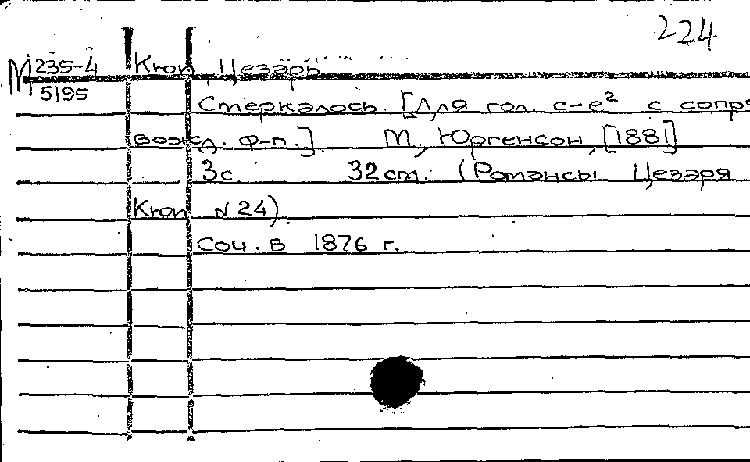 224
М 235-4 Кюи, Цезарь
5195
Стеркалось. [Для гол. c-e² с сопро
вожд. ф-п.] М., Юргенсон, [1881]
3с. 32см. (Романсы Цезаря
Кюи №24)
Соч. в 1876 г.